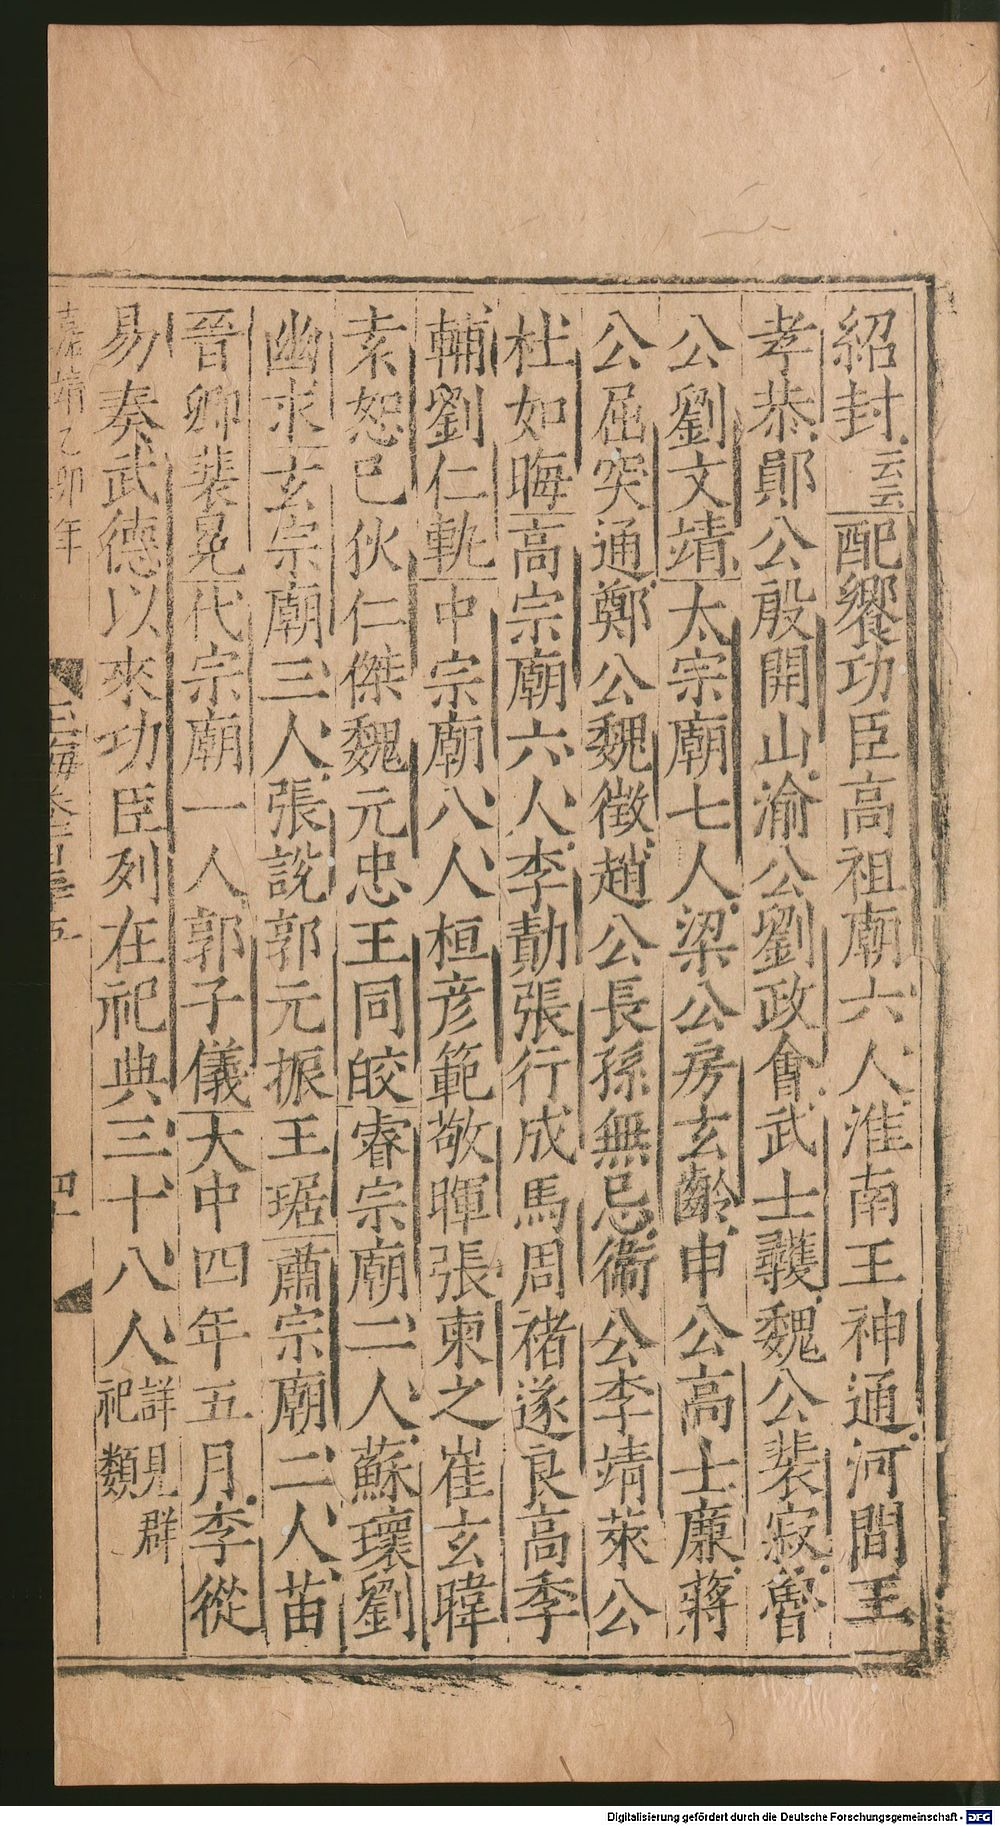 紹封云云配饗功臣高祖廟六人淮南王神通河間王
孝恭鄖公殷開山渝公劉政會武士彠魏公裴寂魯
公劉文靖太宗廟七人梁公房玄齡申公高士廉蔣
公屈突通鄭公魏徵趙公長孫無忌衞公李靖萊公
杜如晦高宗廟六人李勣張行成馬周褚遂良高季
輔劉仁軌中宗廟八人桓彦範敬暉張柬之崔玄暐
袁恕己狄仁傑魏元忠王同皎睿宗廟二人蘇瓌劉
幽求玄宗廟三人張説郭元振王琚肅宗廟二人苗
晉卿裴冕代宗廟一人郭子儀大中四年五月李從
易奏武德以來功臣列在祀典三十八人詳見群祀類
嘉靖乙卯年
玉海卷百三五
四十
Digitalisierung gefördert durch die Deutsche Forschungsgemeinschaft - DFG